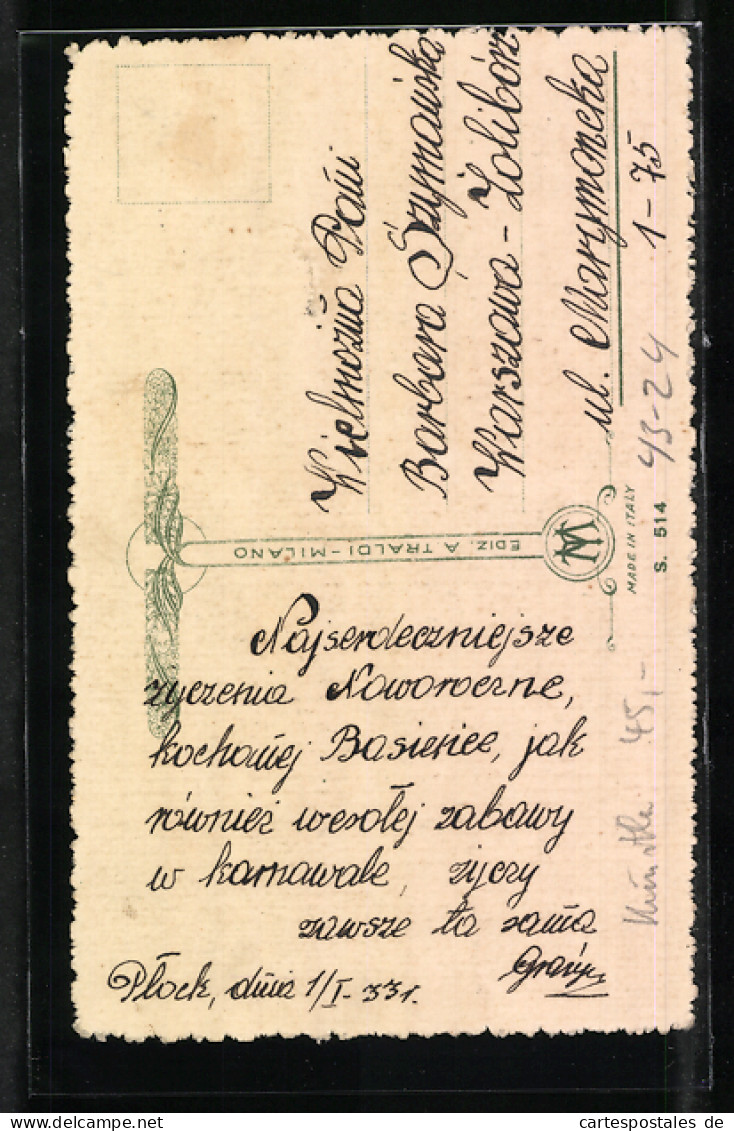 Najserdeczniejsze
życzenia Noworoczne,
kochanej Basieńce, jak
również wesołej zabawy
w karnawale, życzy
zawsze ta sama
Płock, dnia 1/I-33r.
Wielmożna Pani
Barbara Szymańska
Warszawa - Żolibórz
ul. Marymoncka
1-75
EDIZ. A TRALDI - MILANO
MADE IN ITALY
S. 514
43-24
45,-
cartespostales de